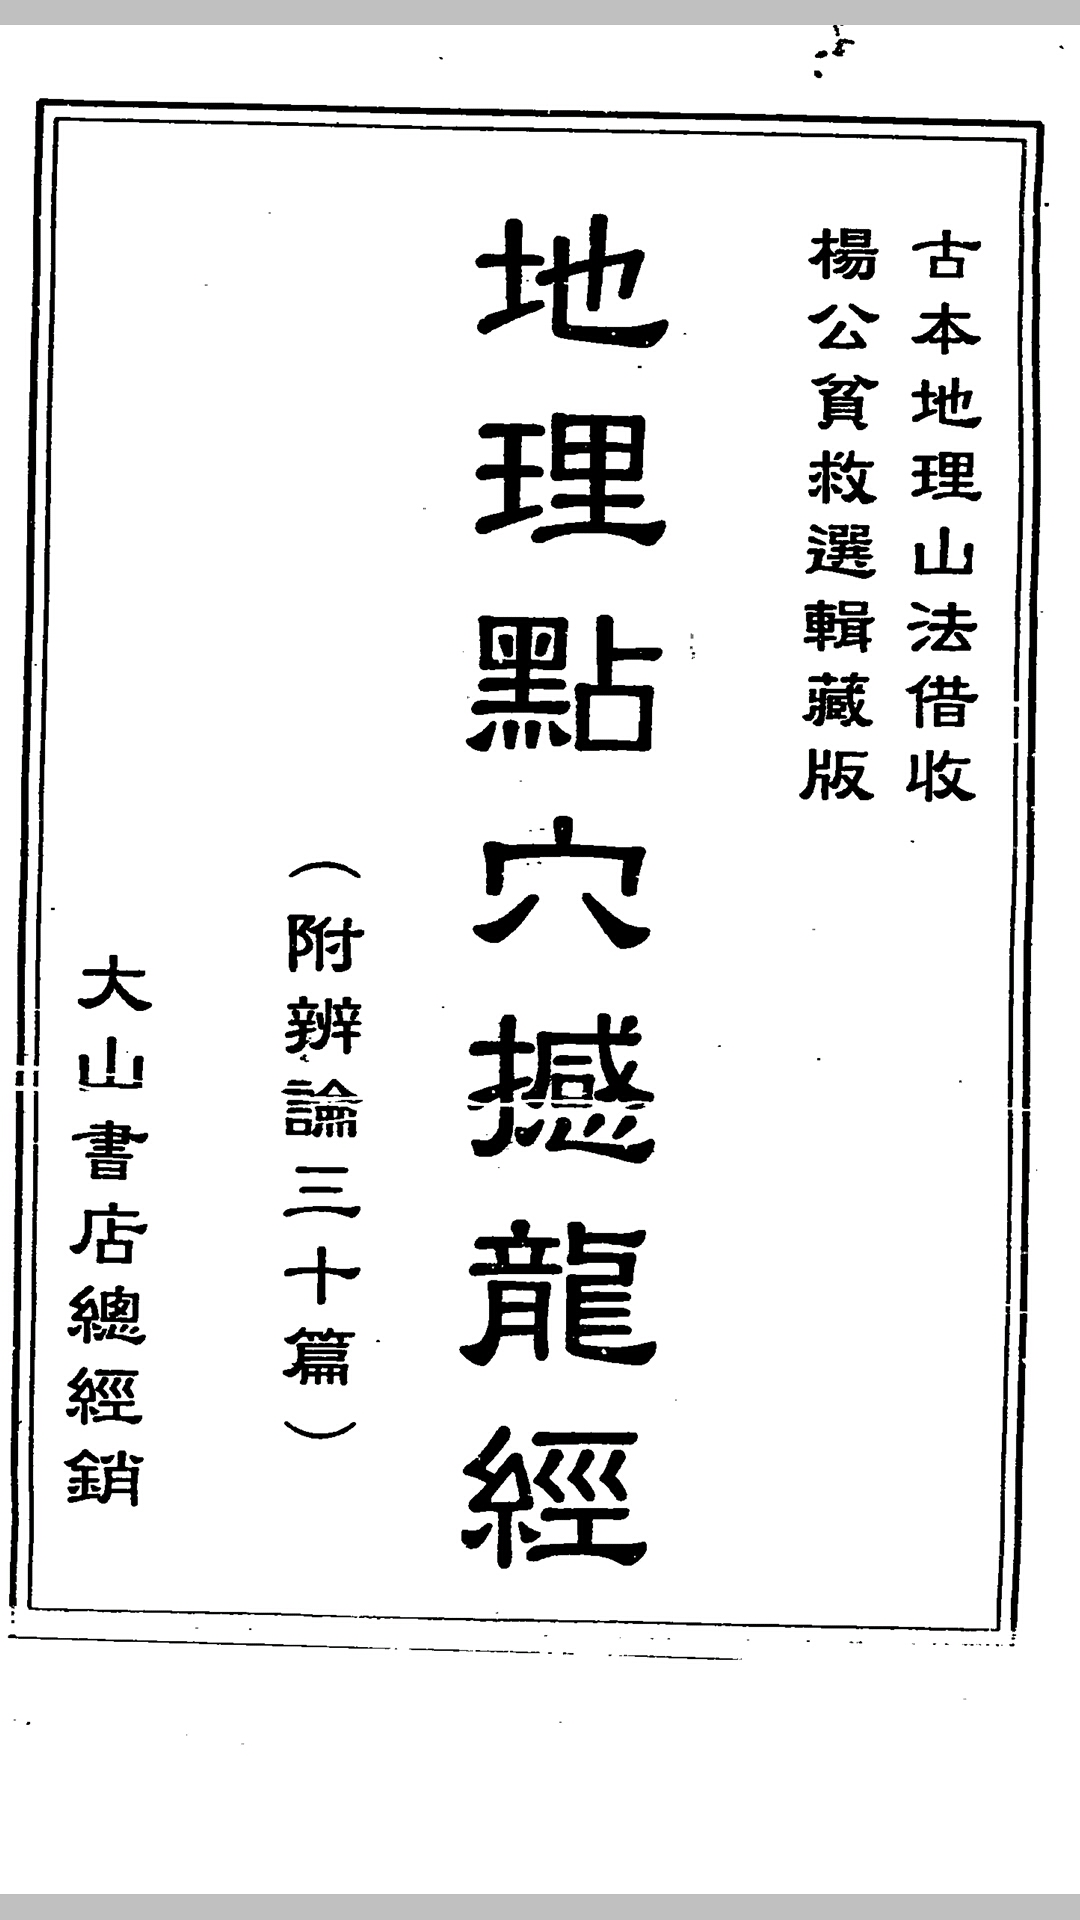 古本地理山法借收
楊公貧救選輯藏版
地理點穴撼龍經
（附辨論三十篇）
大山書店總經銷